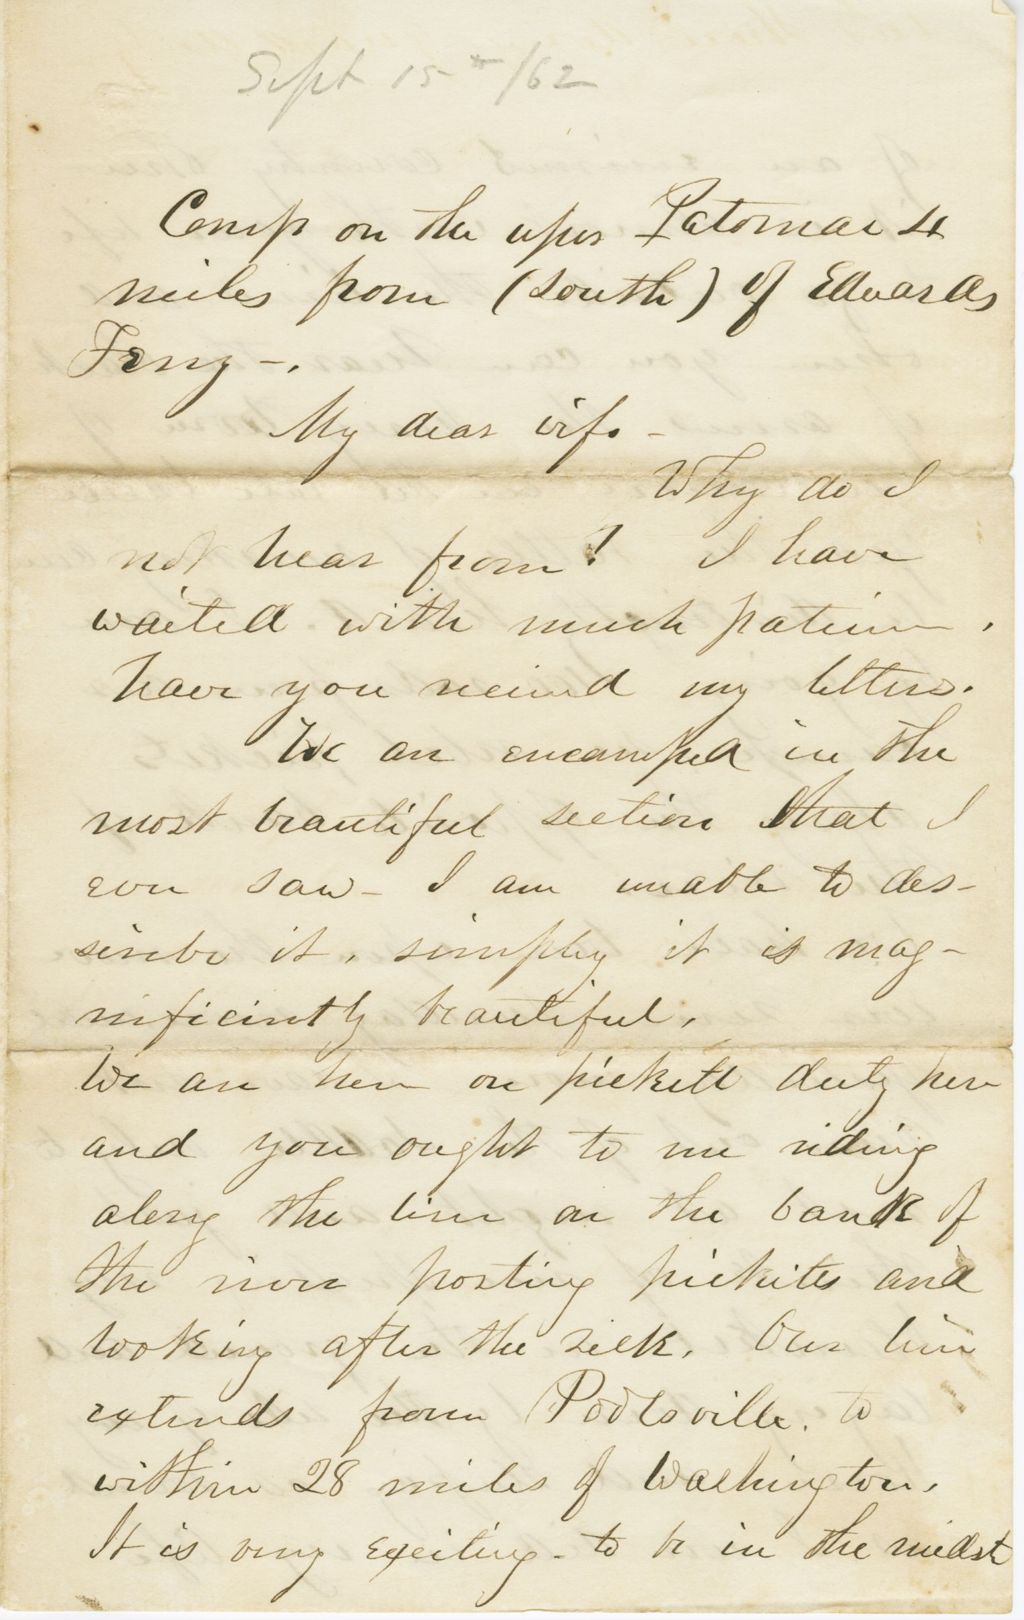 Sept 15th/62
Camp on the uper Potomac 4
miles from (south) of Edwards
Ferry -.
My dear wife -
Why do I
not hear from? I have
waited with much patience.
have you recieved my letters.
We are encamped in the
most beautiful section that I
ever saw - I am unable to des-
scribe it, simply it is mag-
nificintly beautiful,
We are here on pickett duty here
and you ought to see me riding
along the line on the bank of
the river posting pickites and
looking after the sick. Our line
extends from Poolsville. to
within 28 miles of Washington.
It is very exciting - to be in the midst